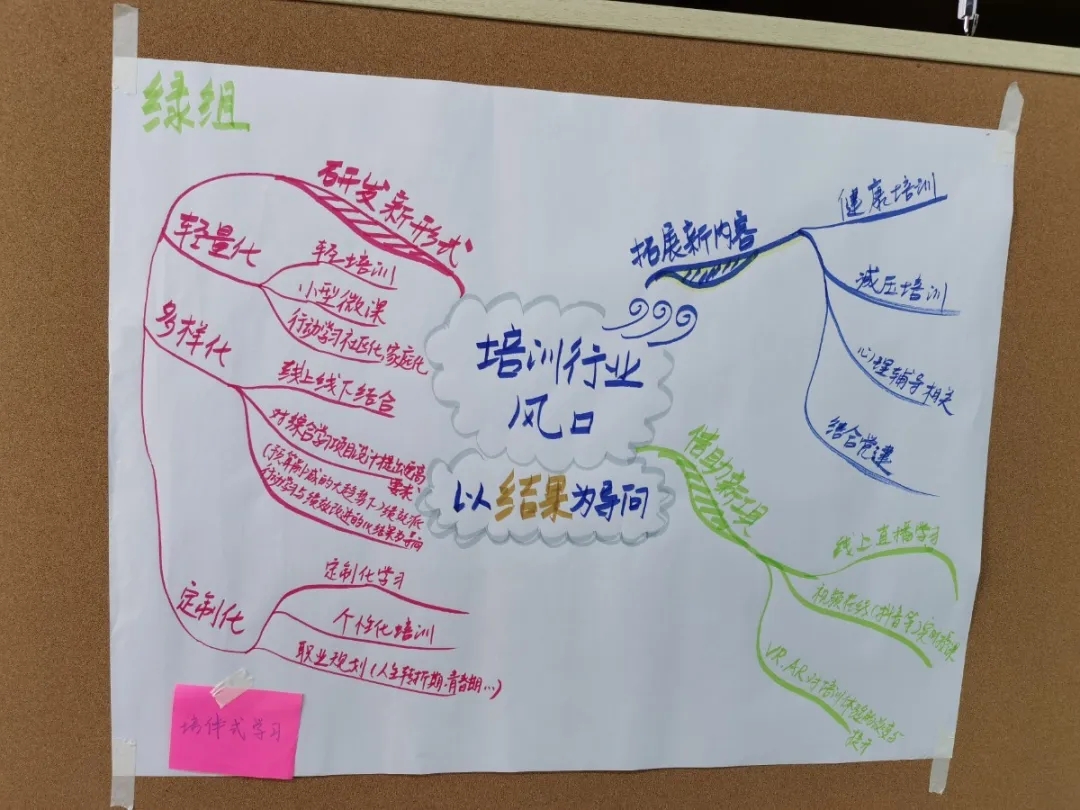 绿组
培训行业
风口
以结果为导向
研发新形式
轻量化
轻培训
小型微课
行动学习社区化家庭化
多样化
线上线下结合
对综合学习项目设计提出更高
要求
(预算削减的大趋势下)绩效派
行动学习与绩效改进的以结果为导向
定制化
定制化学习
个性化培训
职业规划(人生转折期.青春期…)
拓展新内容
健康培训
减压培训
心理辅导相关
结合党建
借助新工具
线上直播学习
视频在线(抖音等)
VR.AR对培训体验的改变与
提升
培伴式学习